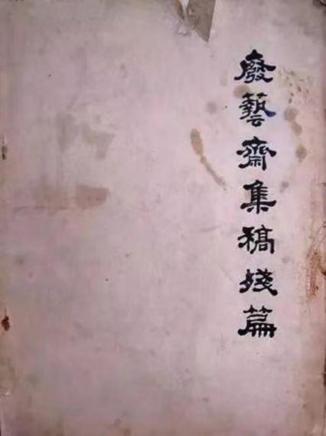 廢藝齋集稿殘篇